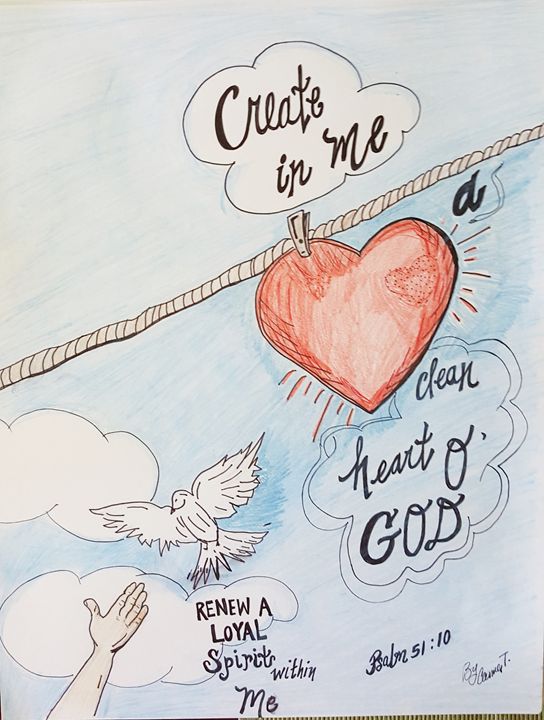 Create
in me
a
clean
heart O'
GOD
RENEW A
LOYAL
Spirit within
Me
Psalm 51:10
By